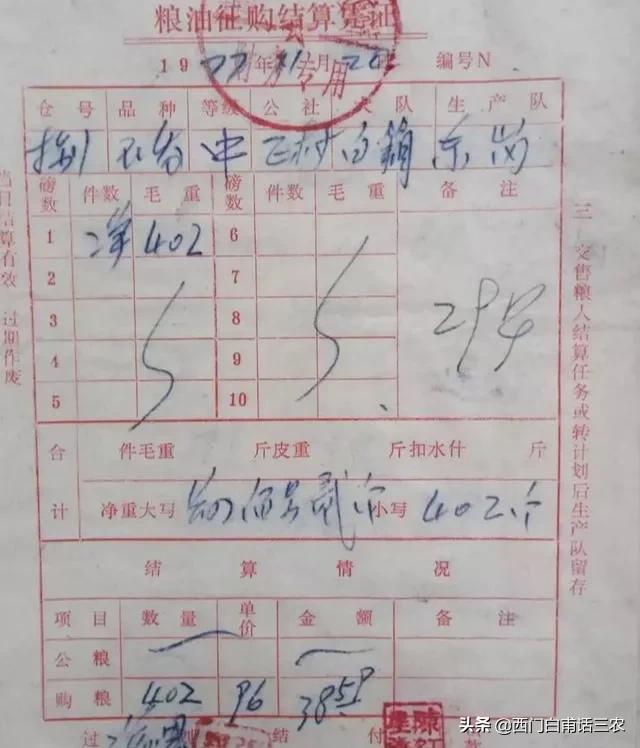 粮油征购结算凭证
专用
19 77 年 11 月 编号N
仓号 品种 等级 公社 大队 生产队
中 村 白 东岗
磅数 件数 毛重 磅数 件数 毛重 备注
1 净 402 6
2 7
3 8
4 9
5 10
294
合计 件毛重 斤皮重 斤扣水什 斤
净重大写 肆佰另贰斤 小写 402斤
结算情况
项目 数量 单价 金额 备注
公粮
购粮 402 96 3859
过 结 付 款
当日结算有效 过期作废
三 交售粮人结算任务或转计划后生产队留存
头条 @西门白甫话三农